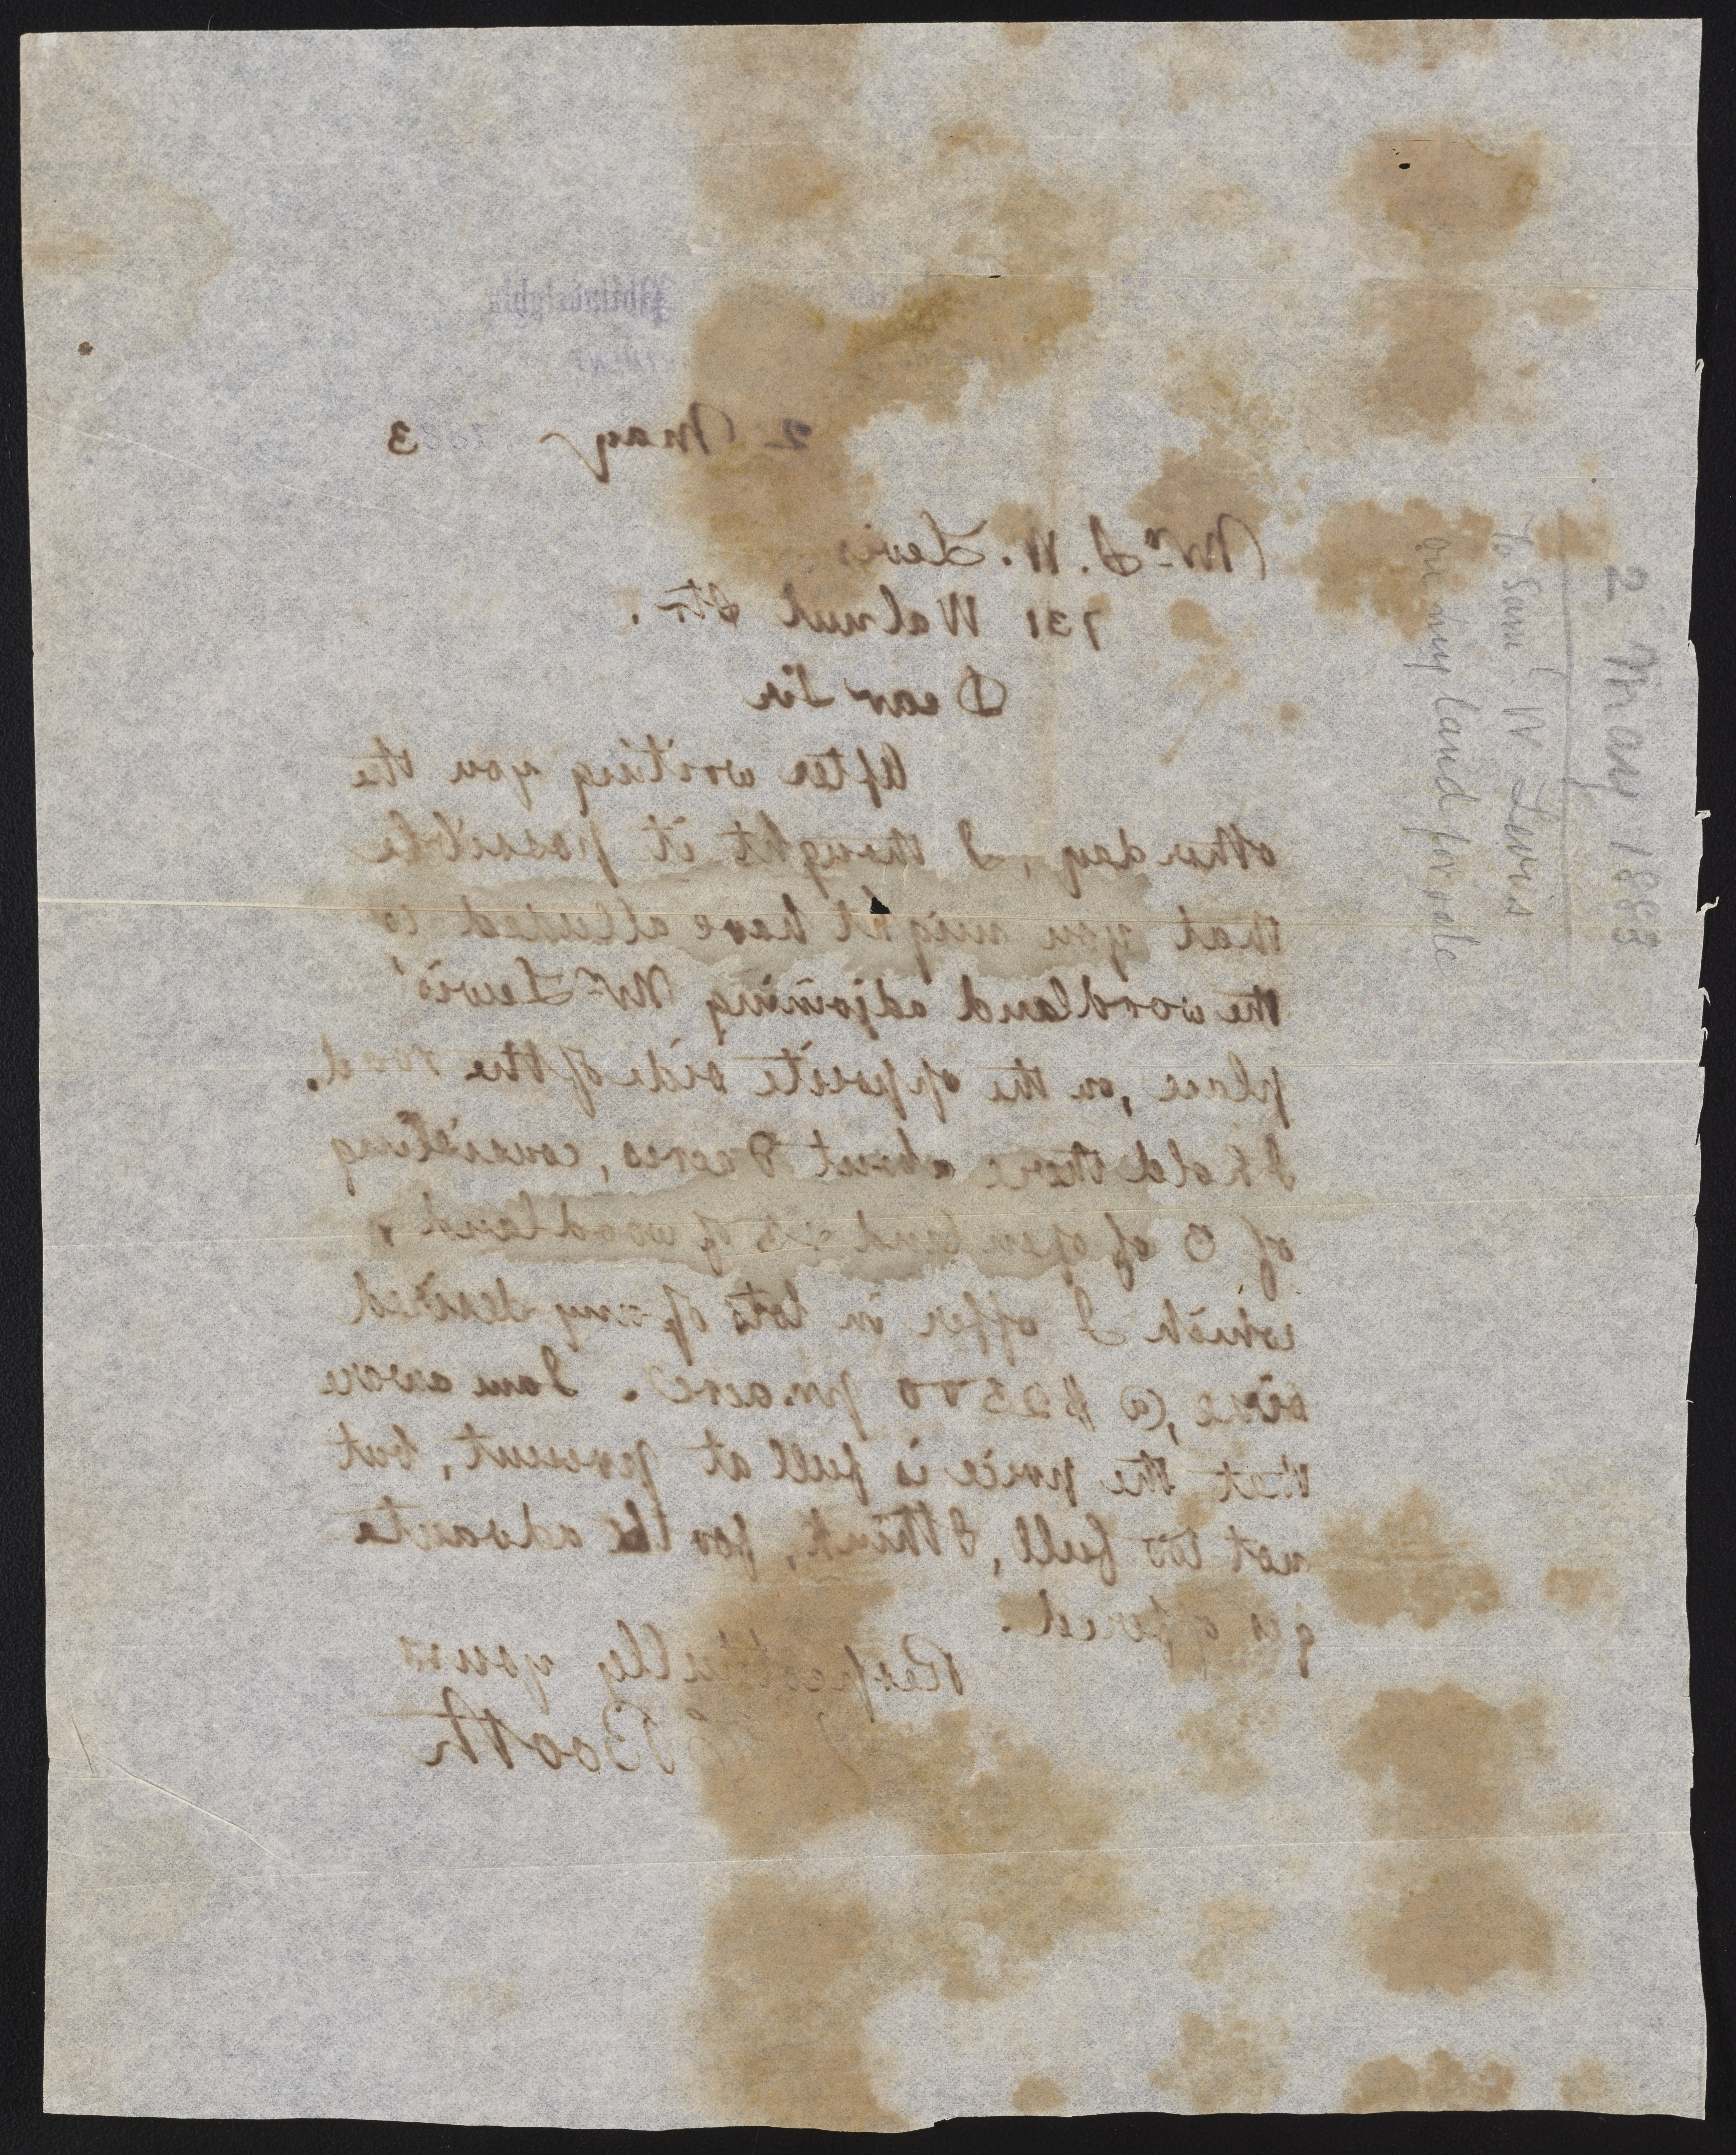 Philadelphia
2 May 1883
Mr. S. W. Lewis,
731 Walnut Str.
Dear Sir
After writing you the
other day, I thought it possible
that you might have alluded to
the woodland adjoining Mr. Lewis'
place, on the opposite side of the road.
I hold there about 8 acres, consisting
of 3 of open land & 5 of woodland,
which I offer in lots of any desired
size, @ $2500 pr. acre. I am aware
that the price is full at present, but
not too full, I think, for the advanta
ges offered.
Respectfully yours
Booth
2 May 1883
To Saml W Lewis
on my land for sale